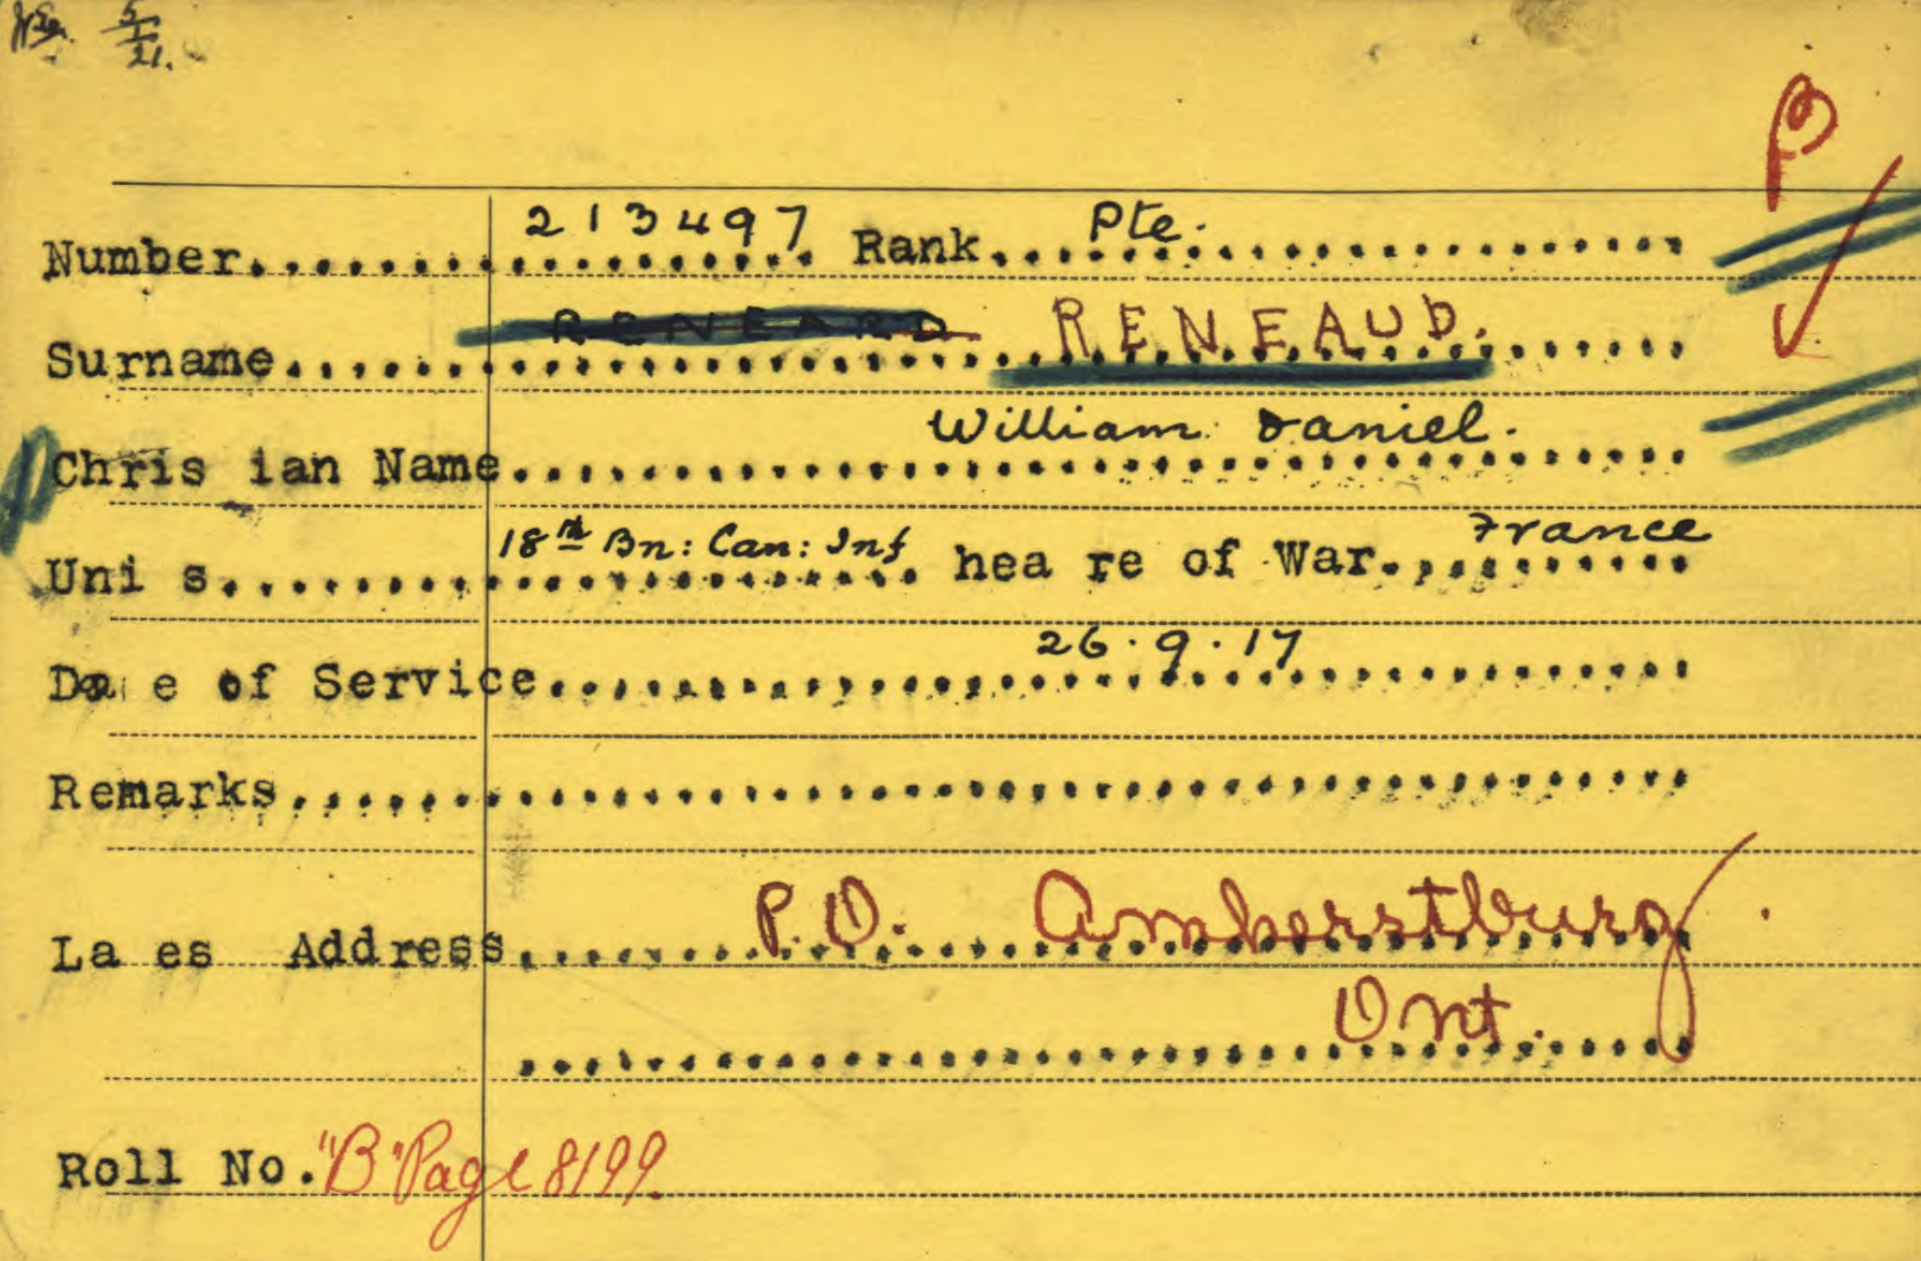 5/21.
P
Number.................. 213497 Rank................ Pte.
Surname................ RENEARD RENEAUD.
Chris ian Name................ William Daniel.
Uni s................ 18th Bn: Can: Inf hea re of War.......... France
Da e of Service................ 26.9.17
Remarks................
La es Address................ P.O. Amherstburg.
Ont.
Roll No. "B" Page 8199.